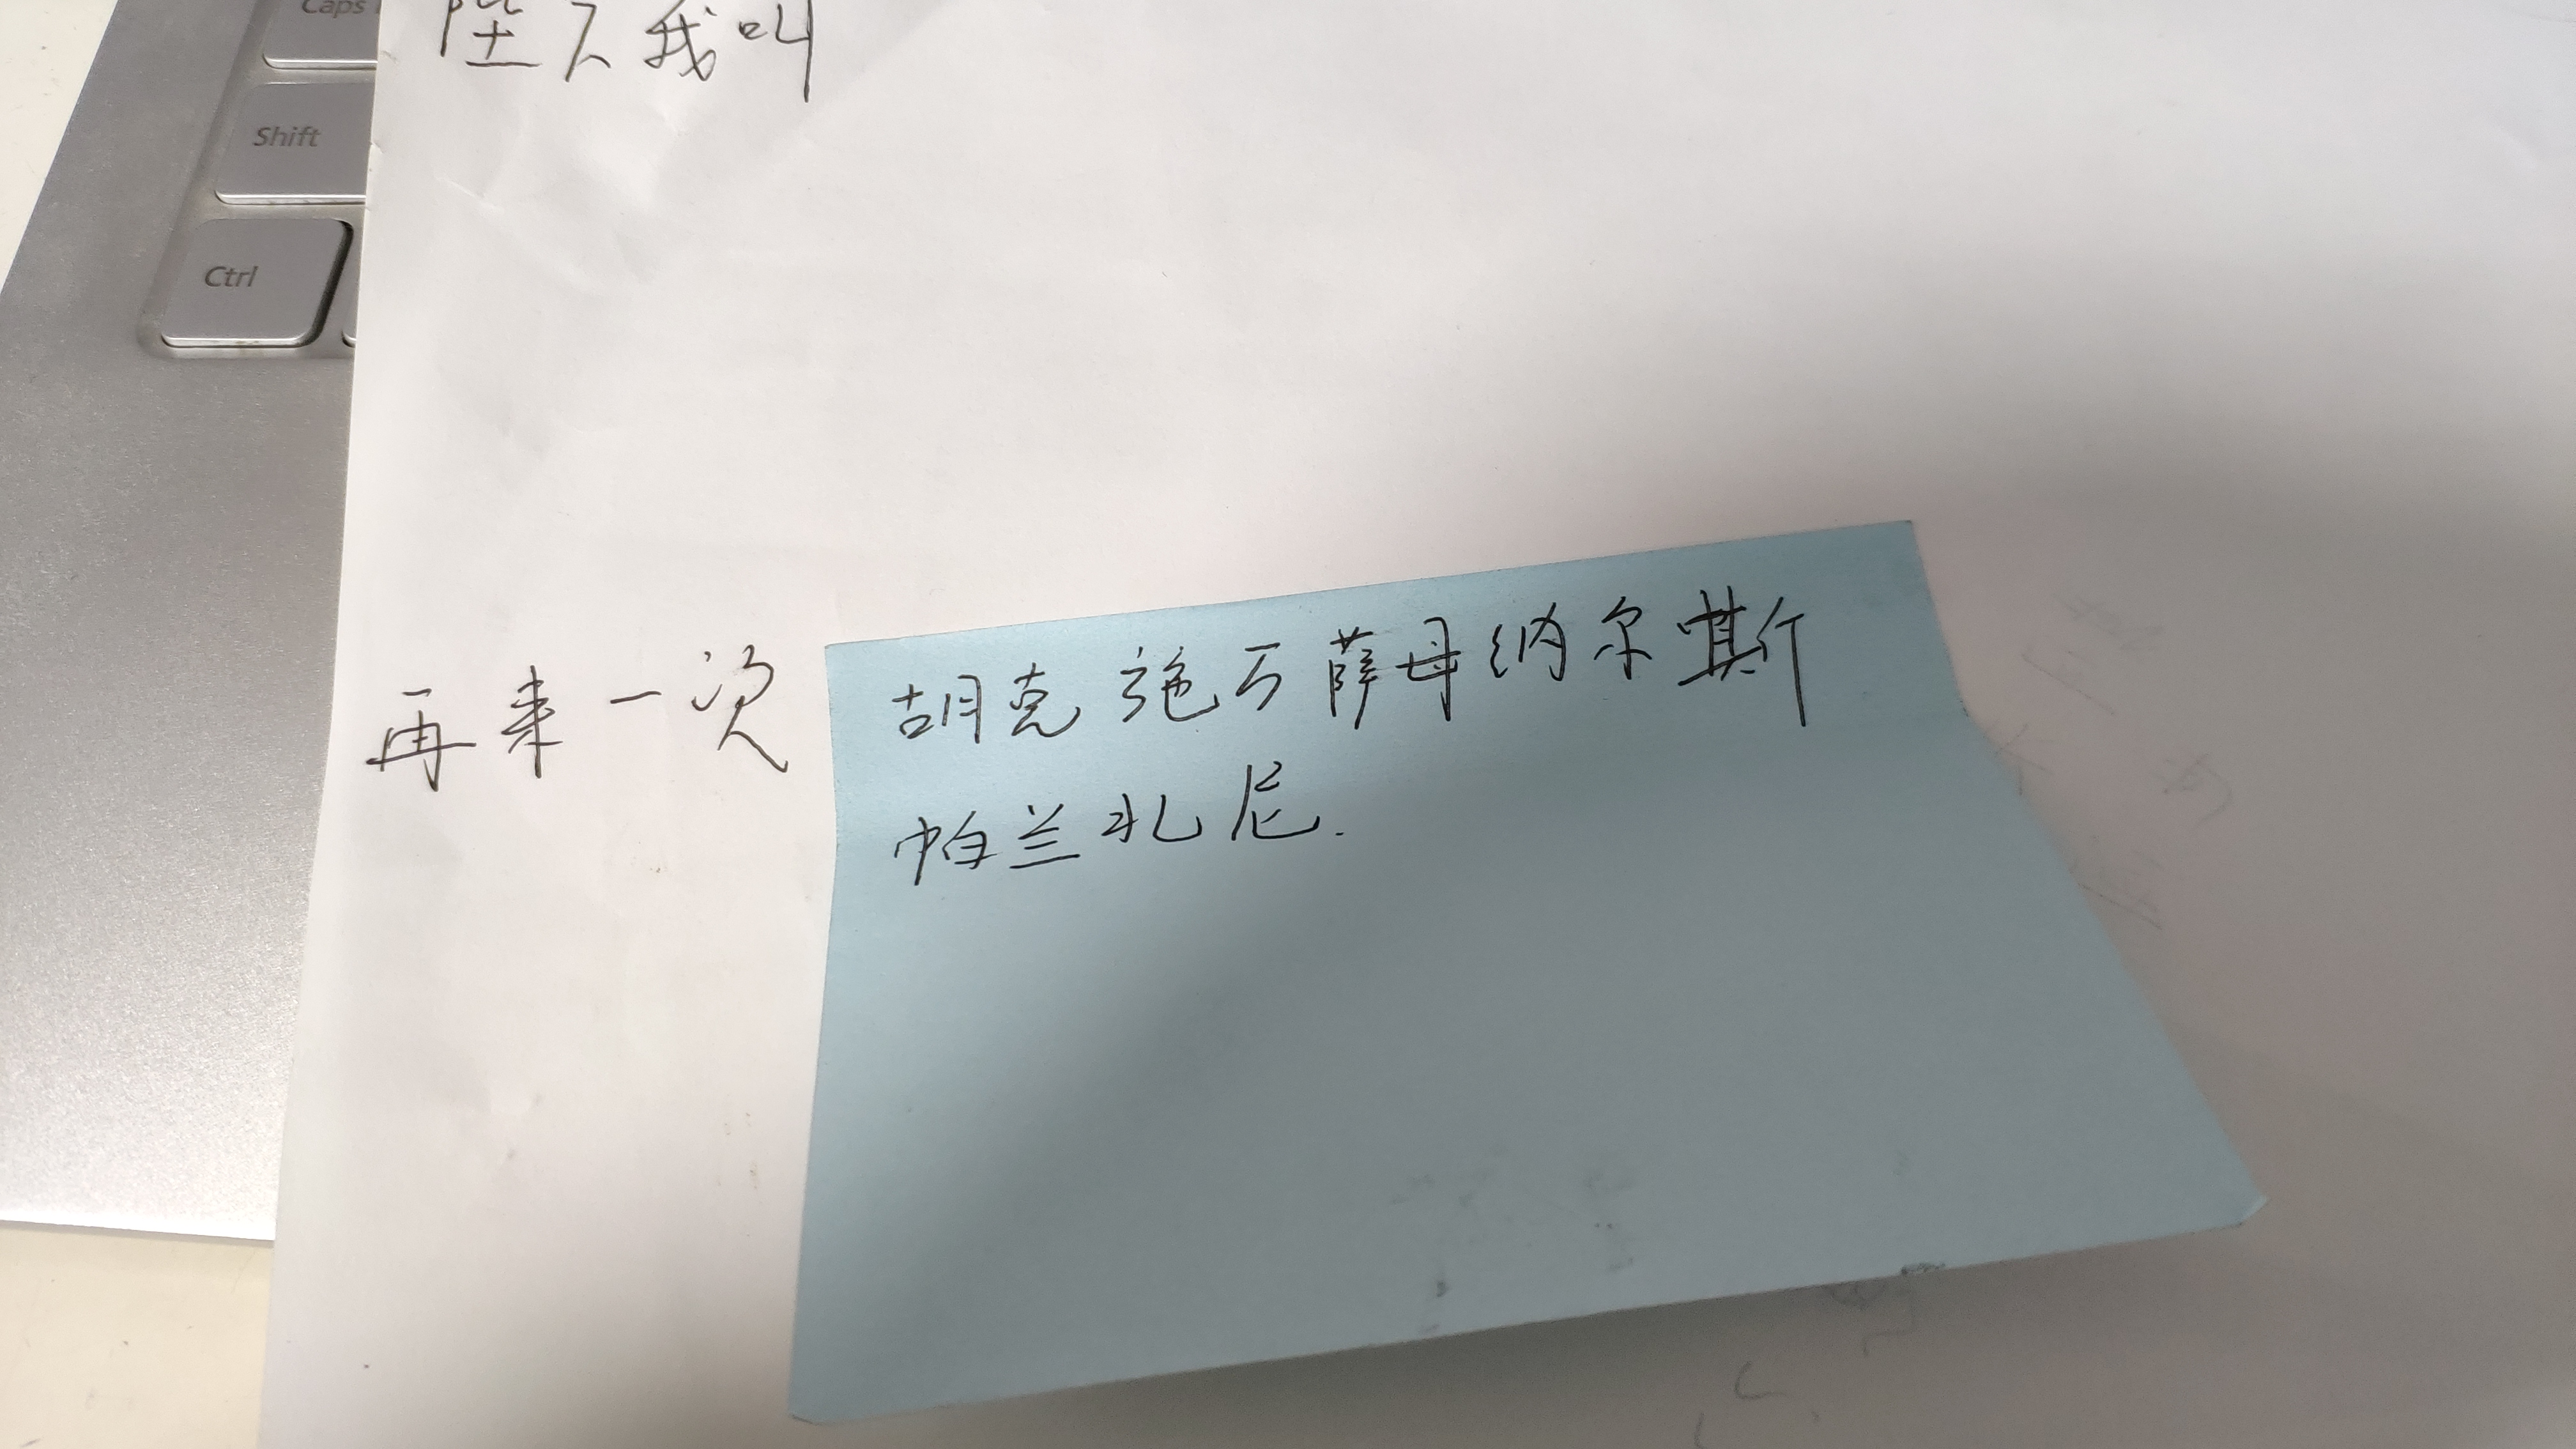 Caps
Shift
Ctrl
陛下我叫
再来一次
胡克施万薩母纳尔嘶
帕兰札尼.